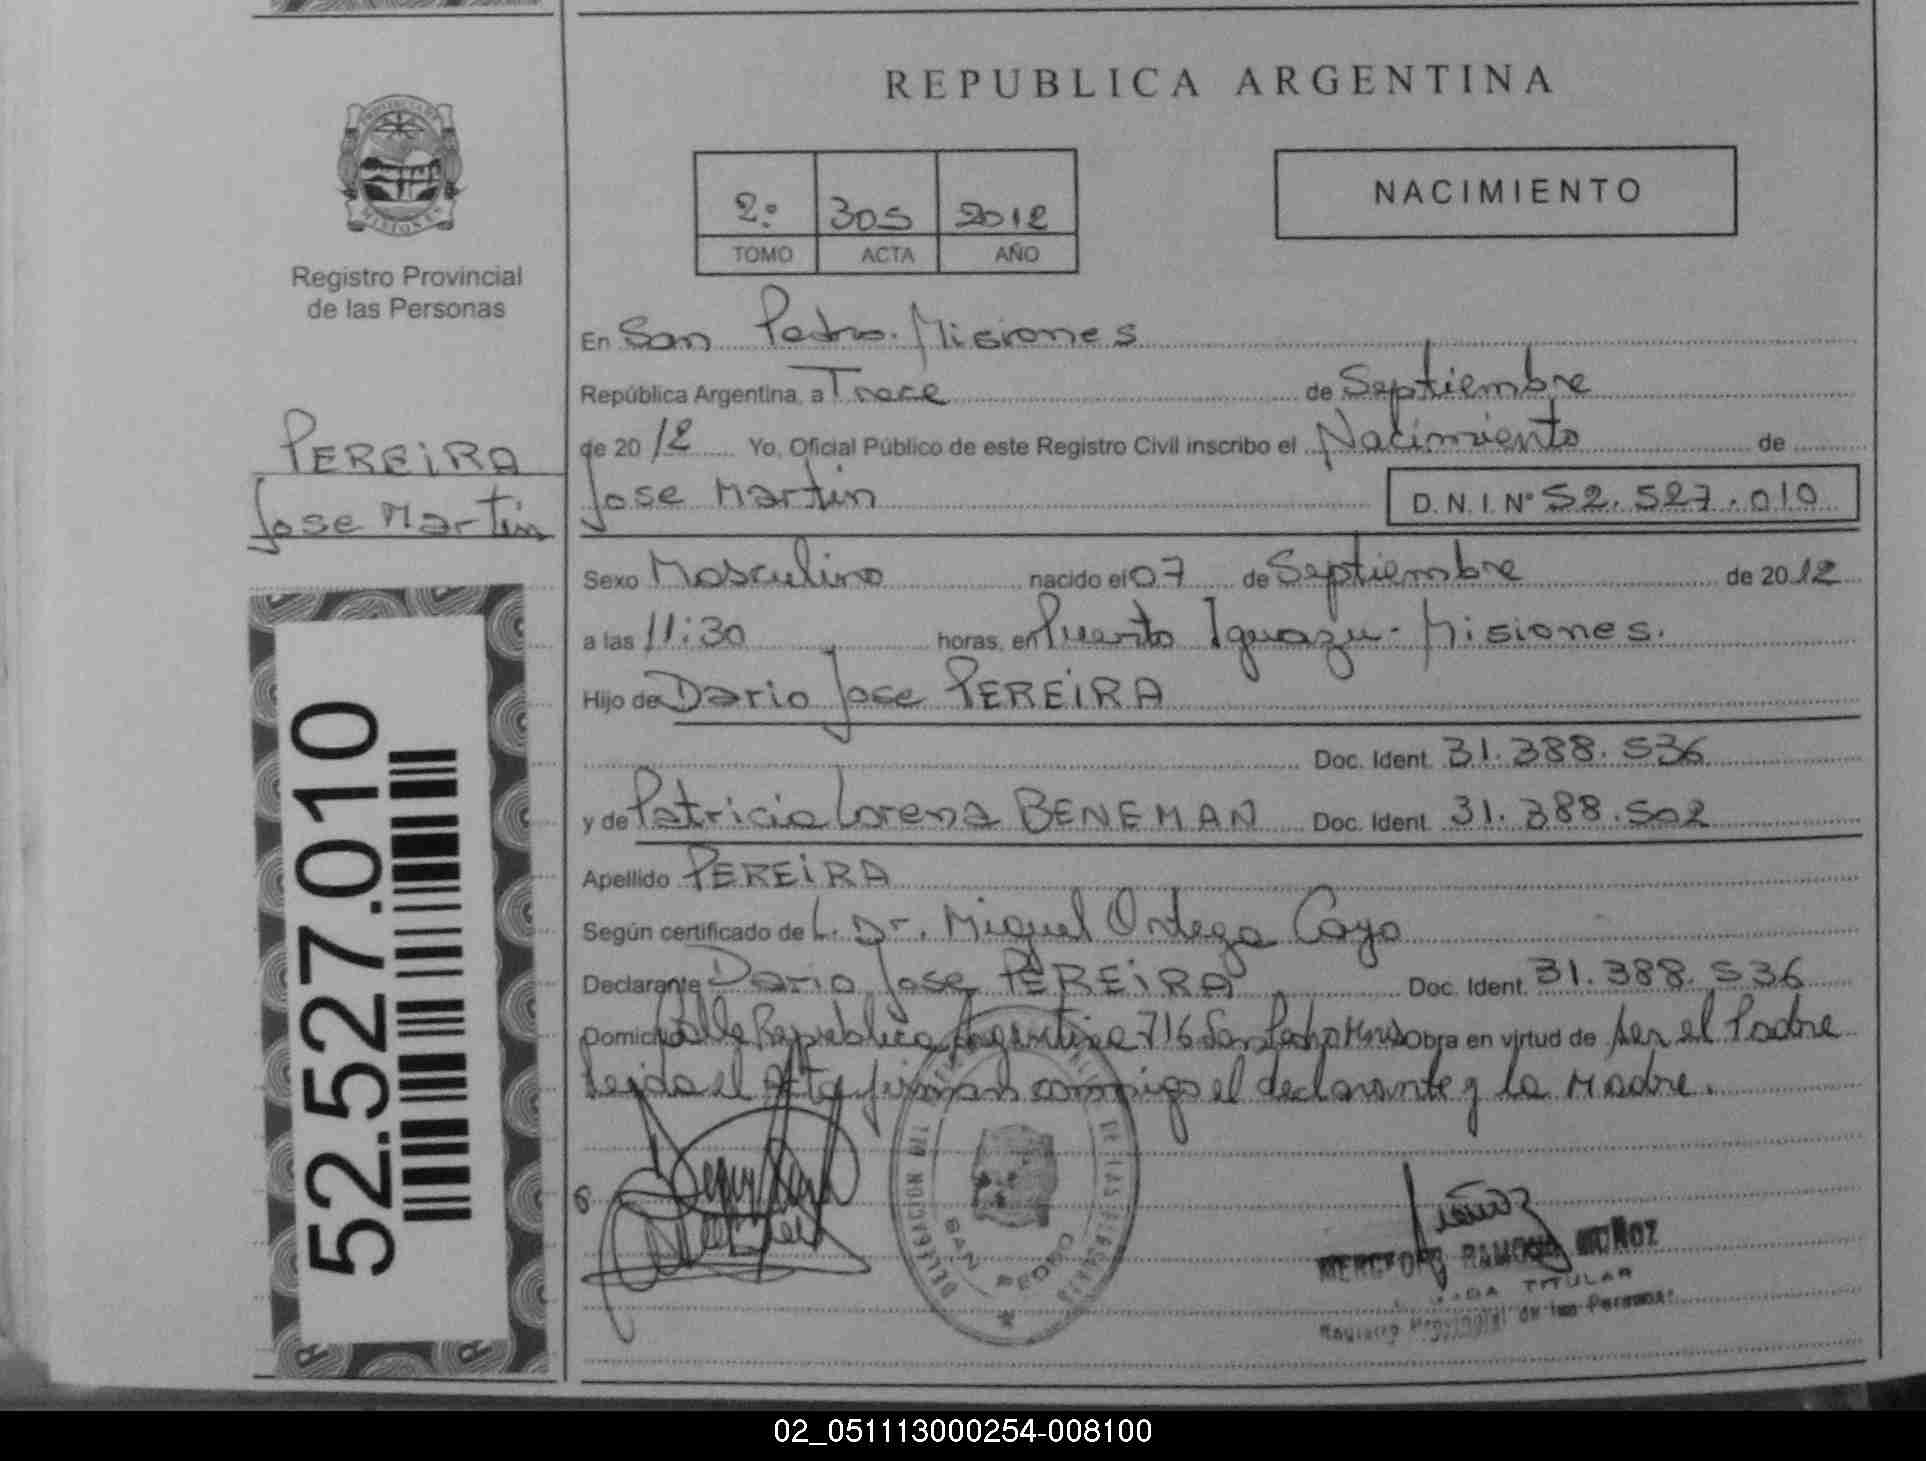 REPUBLICA ARGENTINA
PROVINCIA DE
MISIONES
Registro Provincial
de las Personas
2º 305 2012
TOMO ACTA AÑO
NACIMIENTO
PEREiRA
Jose Martin
52.527.010
En San Pedro. Misiones
República Argentina, a Trece de Septiembre
de 2012 Yo, Oficial Público de este Registro Civil inscribo el Nacimiento de
Jose Martin D.N.I. Nº 52.527.010
Sexo Masculino nacido el 07 de Septiembre de 2012
a las 11:30 horas, en Puerto Iguazu - Misiones.
Hijo de Dario Jose PEREiRA
Doc. Ident. 31.388.536
y de Patricia Lorena BENEMAN Doc. Ident. 31.388.502
Apellido PEREiRA
Según certificado de L. Dr. Miguel Ortega Cayo
Declarante Dario Jose PEREiRA Doc. Ident. 31.388.536
Domicilio Calle Republica Argentina 716 San Pedro Mnes Obra en virtud de ser el Padre
Leida el Acta firman conmigo el declarante y la Madre.
DELEGACION DEL
DE LAS PERSONAS
SAN PEDRO
RAMONA MUÑOZ
TITULAR
Registro Provincial de las Personas
02_051113000254-008100